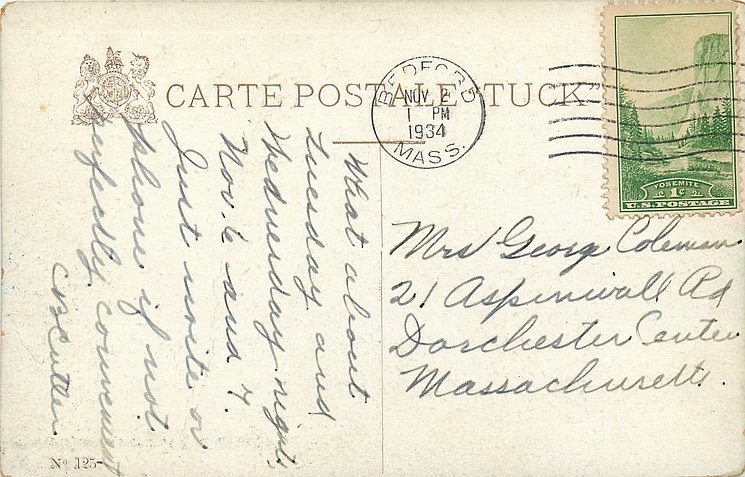 CARTE POSTALE "TUCK"
BEDFORD
NOV 2
1 PM
1934
MASS.
YOSEMITE
1¢
U.S. POSTAGE
What about
tuesday and
Wednesday nights
Nov. 6 and 7.
Just write or
phone if not
perfectly convenient
CB Cutler.
Mrs George Coleman
21 Aspinwall Rd
Dorchester Center
Massachusetts.
No 125-